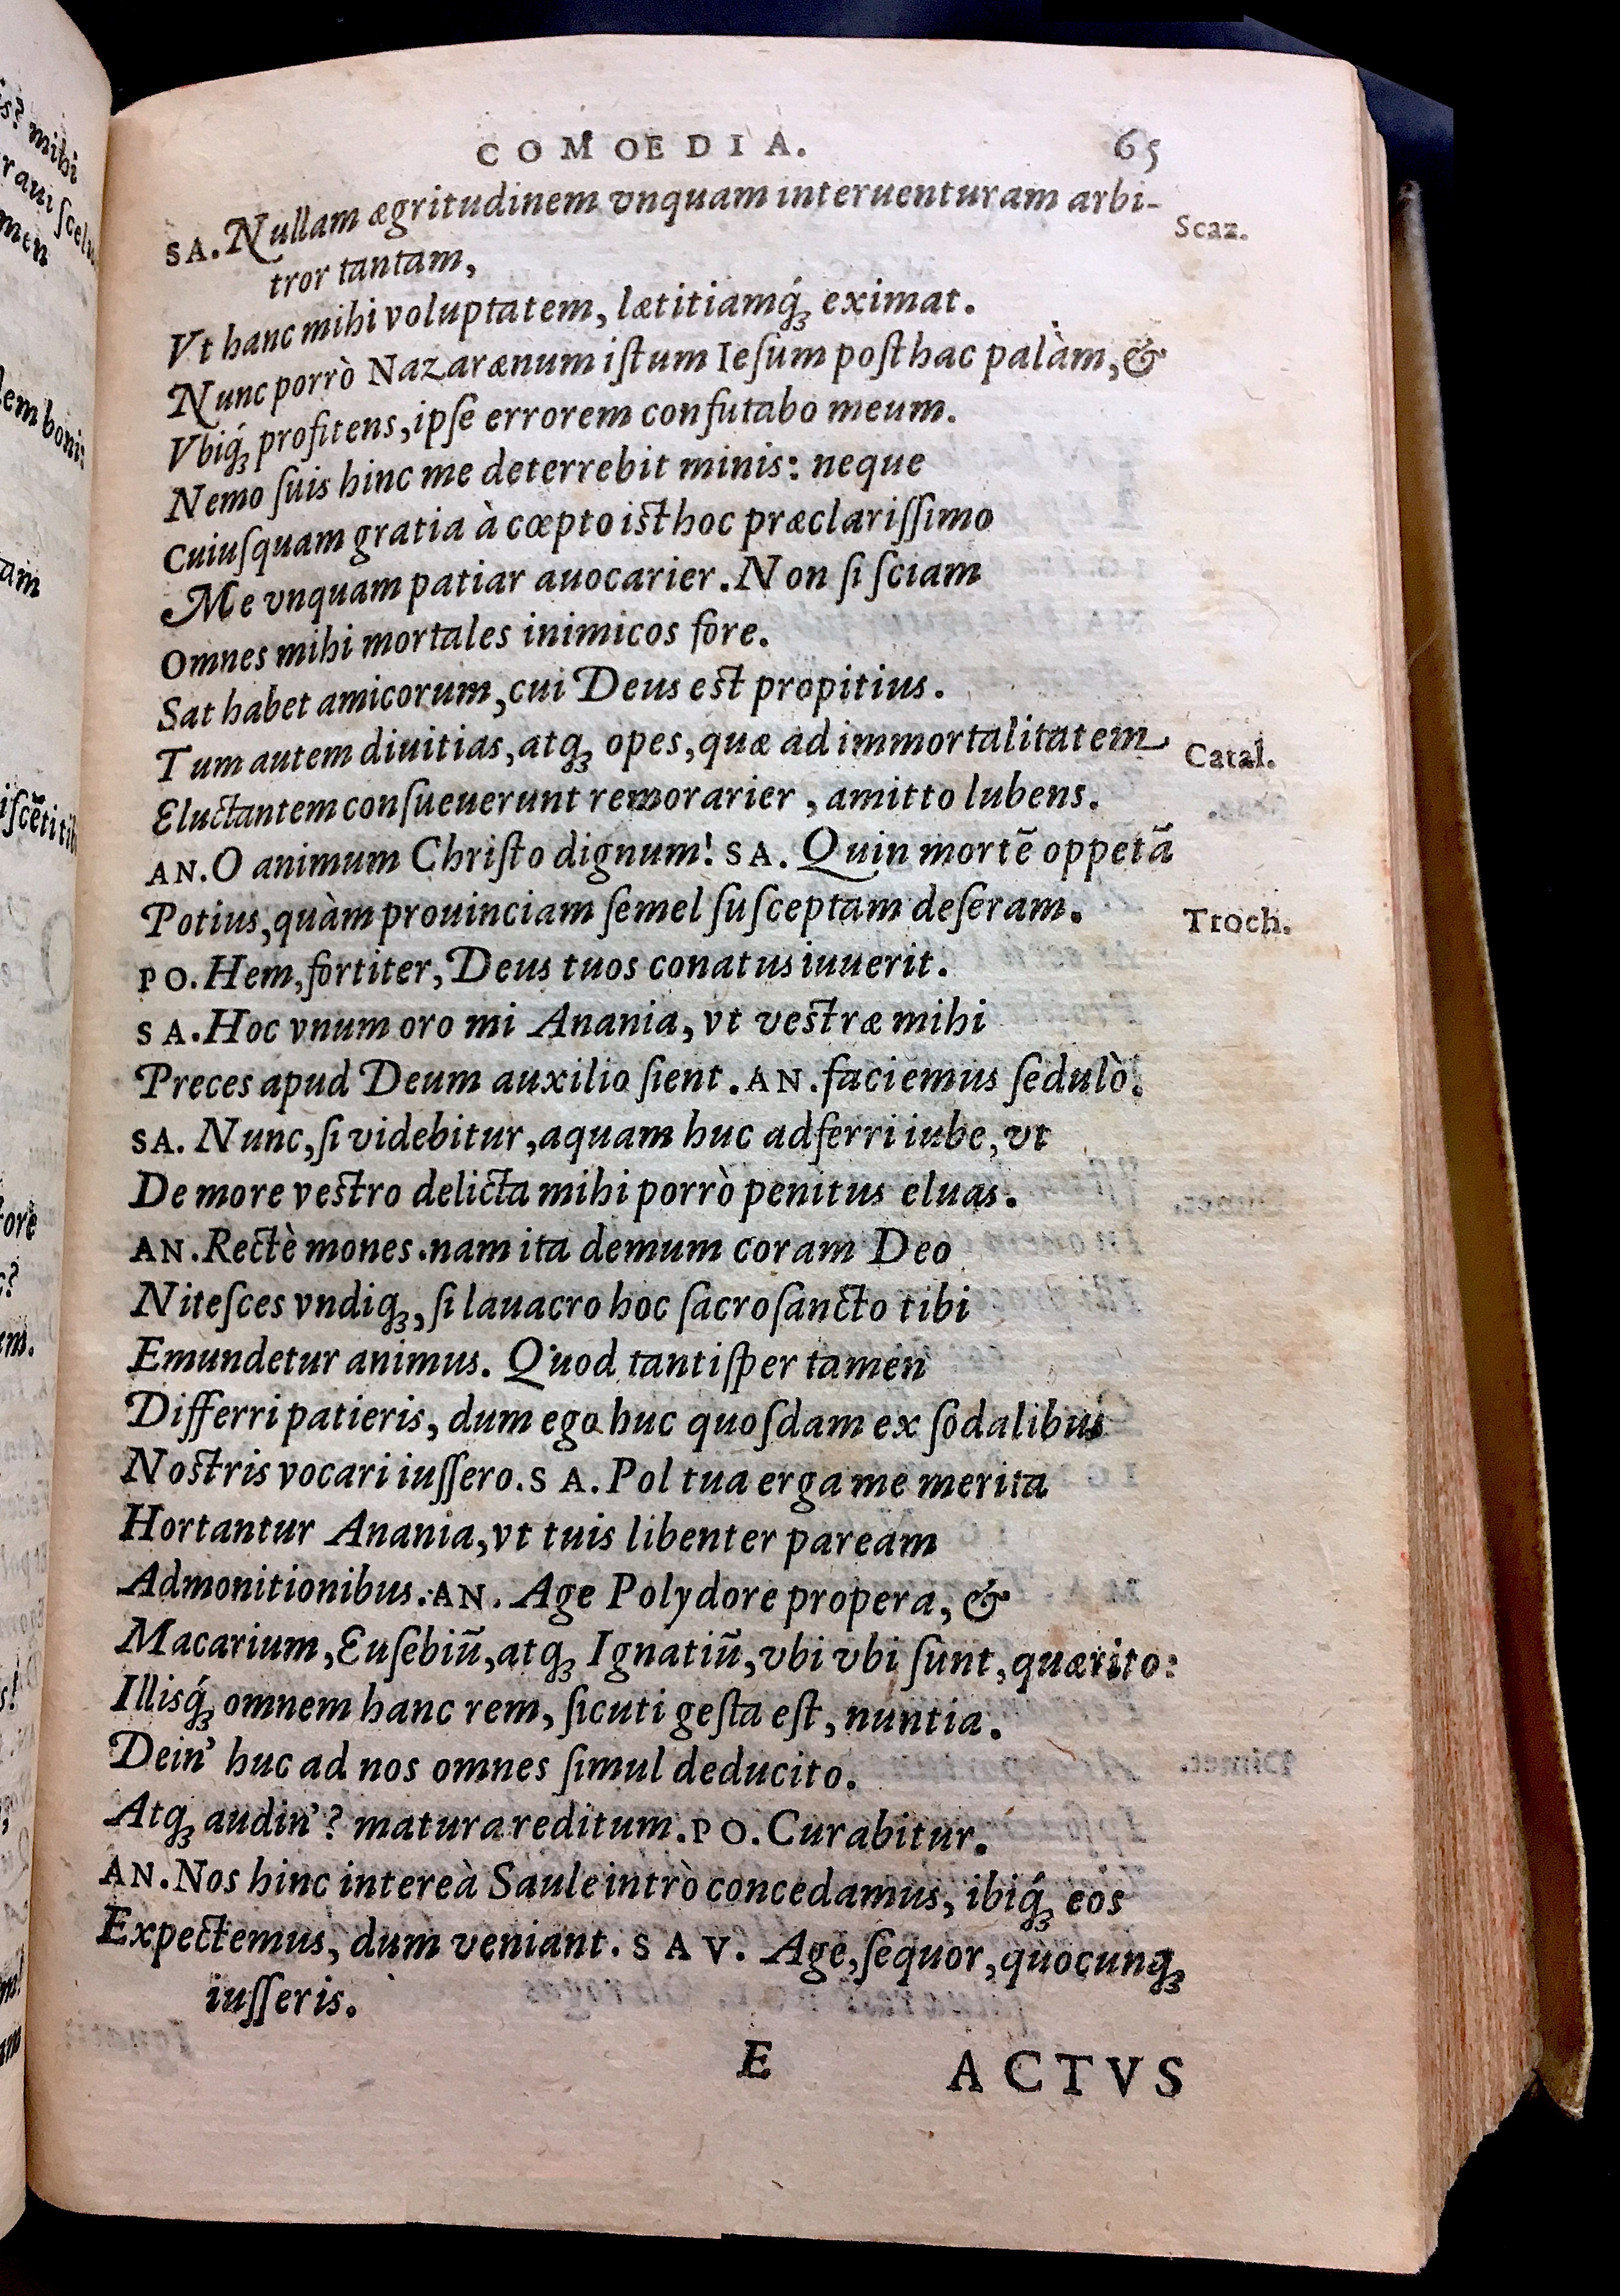 COMOEDIA. 65
SA. Nullam ægritudinem vnquam interuenturam arbi- Scaz.
tror tantam,
Vt hanc mihi voluptatem, lætitiamq́ꝫ eximat.
Nunc porrò Nazarænum iſtum Ieſum poſthac palàm, &
Vbiq́ꝫ profitens, ipſe errorem confutabo meum.
Nemo ſuis hinc me deterrebit minis: neque
Cuiuſquam gratia à cœpto isthoc præclariſſimo
Me vnquam patiar auocarier. Non ſi ſciam
Omnes mihi mortales inimicos fore.
Sat habet amicorum, cui Deus est propitius.
Tum autem diuitias, atqꝫ opes, quæ ad immortalitatem Catal.
Eluctantem conſueuerunt remorarier, amitto lubens.
AN. O animum Chriſto dignum! SA. Quin mortē oppetā
Potius, quàm prouinciam ſemel ſuſceptam deſeram. Troch.
PO. Hem, fortiter, Deus tuos conatus iuuerit.
SA. Hoc vnum oro mi Anania, vt vestræ mihi
Preces apud Deum auxilio ſient. AN. faciemus ſedulò.
SA. Nunc, ſi videbitur, aquam huc adferri iube, vt
De more vestro delicta mihi porrò penitus eluas.
AN. Rectè mones. nam ita demum coram Deo
Niteſces vndiqꝫ, ſi lauacro hoc ſacroſancto tibi
Emundetur animus. Quod tantiſper tamen
Differri patieris, dum ego huc quoſdam ex ſodalibus
Nostris vocari iuſſero. SA. Pol tua erga me merita
Hortantur Anania, vt tuis libenter paream
Admonitionibus. AN. Age Polydore propera, &
Macarium, Euſebiū, atqꝫ Ignatiū, vbi vbi ſunt, quærito:
Illisq́ꝫ omnem hanc rem, ſicuti geſta eſt, nuntia.
Dein' huc ad nos omnes ſimul deducito.
Atqꝫ audin'? matura reditum. PO. Curabitur.
AN. Nos hinc intereà Saule intrò concedamus, ibiq́ꝫ eos
Expectemus, dum veniant. SAV. Age, ſequor, quocunqꝫ
iuſſeris.
E ACTVS